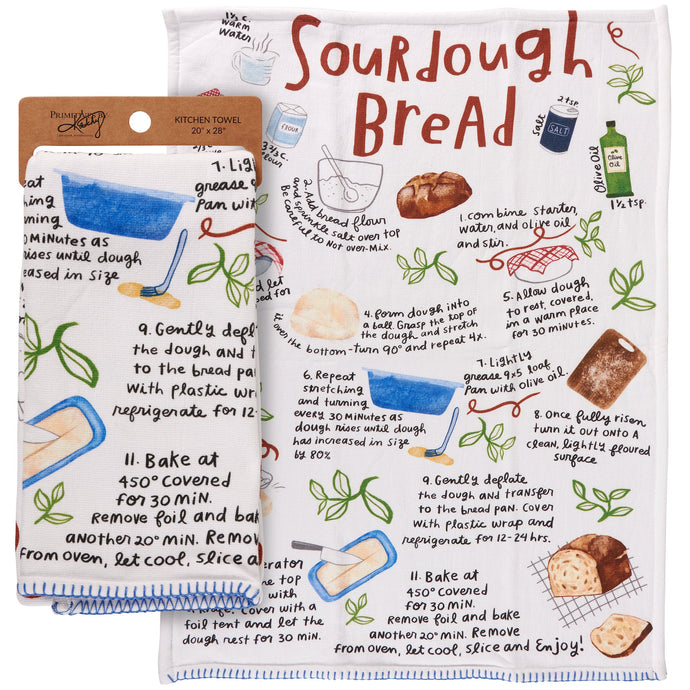 PRIMITIVES BY
Kathy
KITCHEN TOWEL
20" x 28"
7. Ligh
grease 9x
Pan with
eat
ching
rning
0 Minutes as
rises until dough
eased in size
9. Gently defla
the dough and t
to the bread pa
With plastic wra
refrigerate for 12-
11. Bake at
450° covered
for 30 min.
Remove foil and bak
another 20 min. Remov
from oven, let cool, slice a
1½ c.
Warm
Water
Sourdough
Bread
FLOUR
3⅓ c.
flour
2 tsp
SALT
Olive Oil
Olive
Oil
1½ tsp.
2. Add bread flour
and sprinkle salt over top
Be careful to Not over-Mix.
1. Combine starter,
water, and olive oil
and stir.
d let
sed for
4. Form dough into
a ball. Grasp the top of
the dough and stretch
it over the bottom-turn 90° and repeat 4x.
5. Allow dough
to rest, covered,
in a warm place
for 30 minutes.
6. Repeat
stretching
and turning
every 30 Minutes as
dough rises until dough
has increased in size
by 80%
7. Lightly
grease 9x5 loaf
Pan with olive oil.
8. Once fully risen
turn it out onto a
clean, lightly floured
surface
9. Gently deflate
the dough and transfer
to the bread pan. Cover
With plastic wrap and
refrigerate for 12-24 hrs.
erator
he top
with
knife. Cover with a
foil tent and let the
dough rest for 30 min.
11. Bake at
450° covered
for 30 min.
Remove foil and bake
another 20 min. Remove
from oven, let cool, slice and Enjoy!